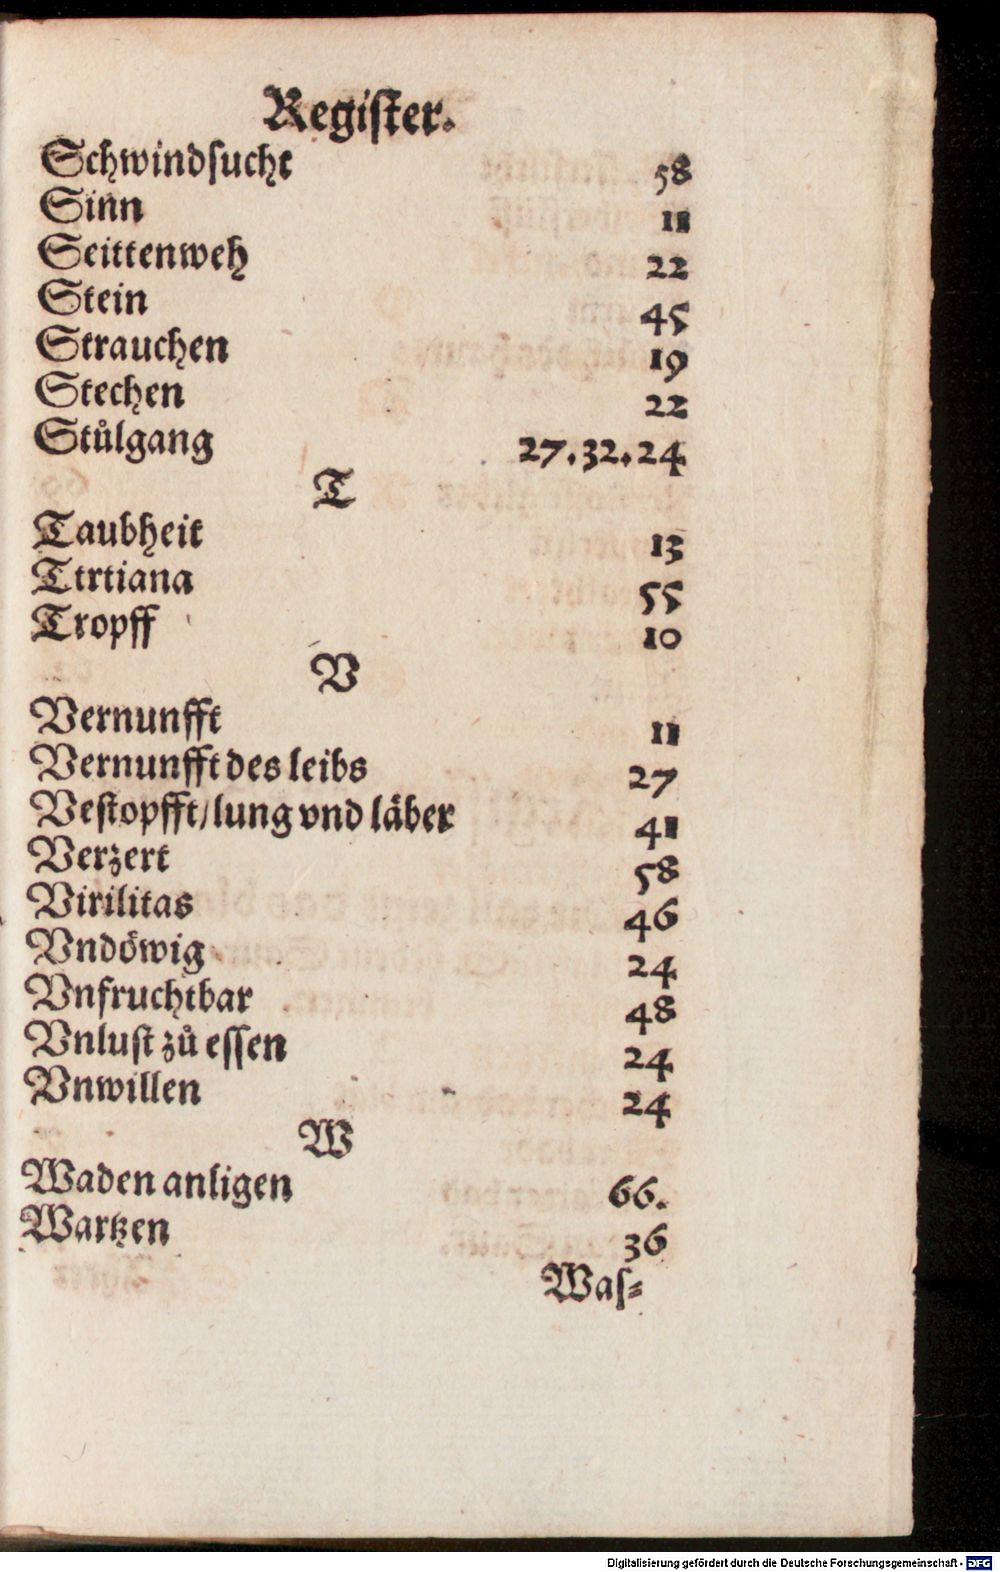 Register.
Schwindſucht 58
Sinn 11
Seittenweh 22
Stein 45
Strauchen 19
Stechen 22
Stuͦlgang 27.32.24
T
Taubheit 13
Ttrtiana 55
Tropff 10
V
Vernunfft 11
Vernunfft des leibs 27
Veſtopfft/lung vnd laͤber 41
Verzert 58
Virilitas 46
Vndoͤwig 24
Vnfruchtbar 48
Vnluſt zuͦ eſſen 24
Vnwillen 24
W
Waden anligen 66.
Wartzen 36
Waſ⸗
Digitalisierung gefördert durch die Deutsche Forschungsgemeinschaft - DFG